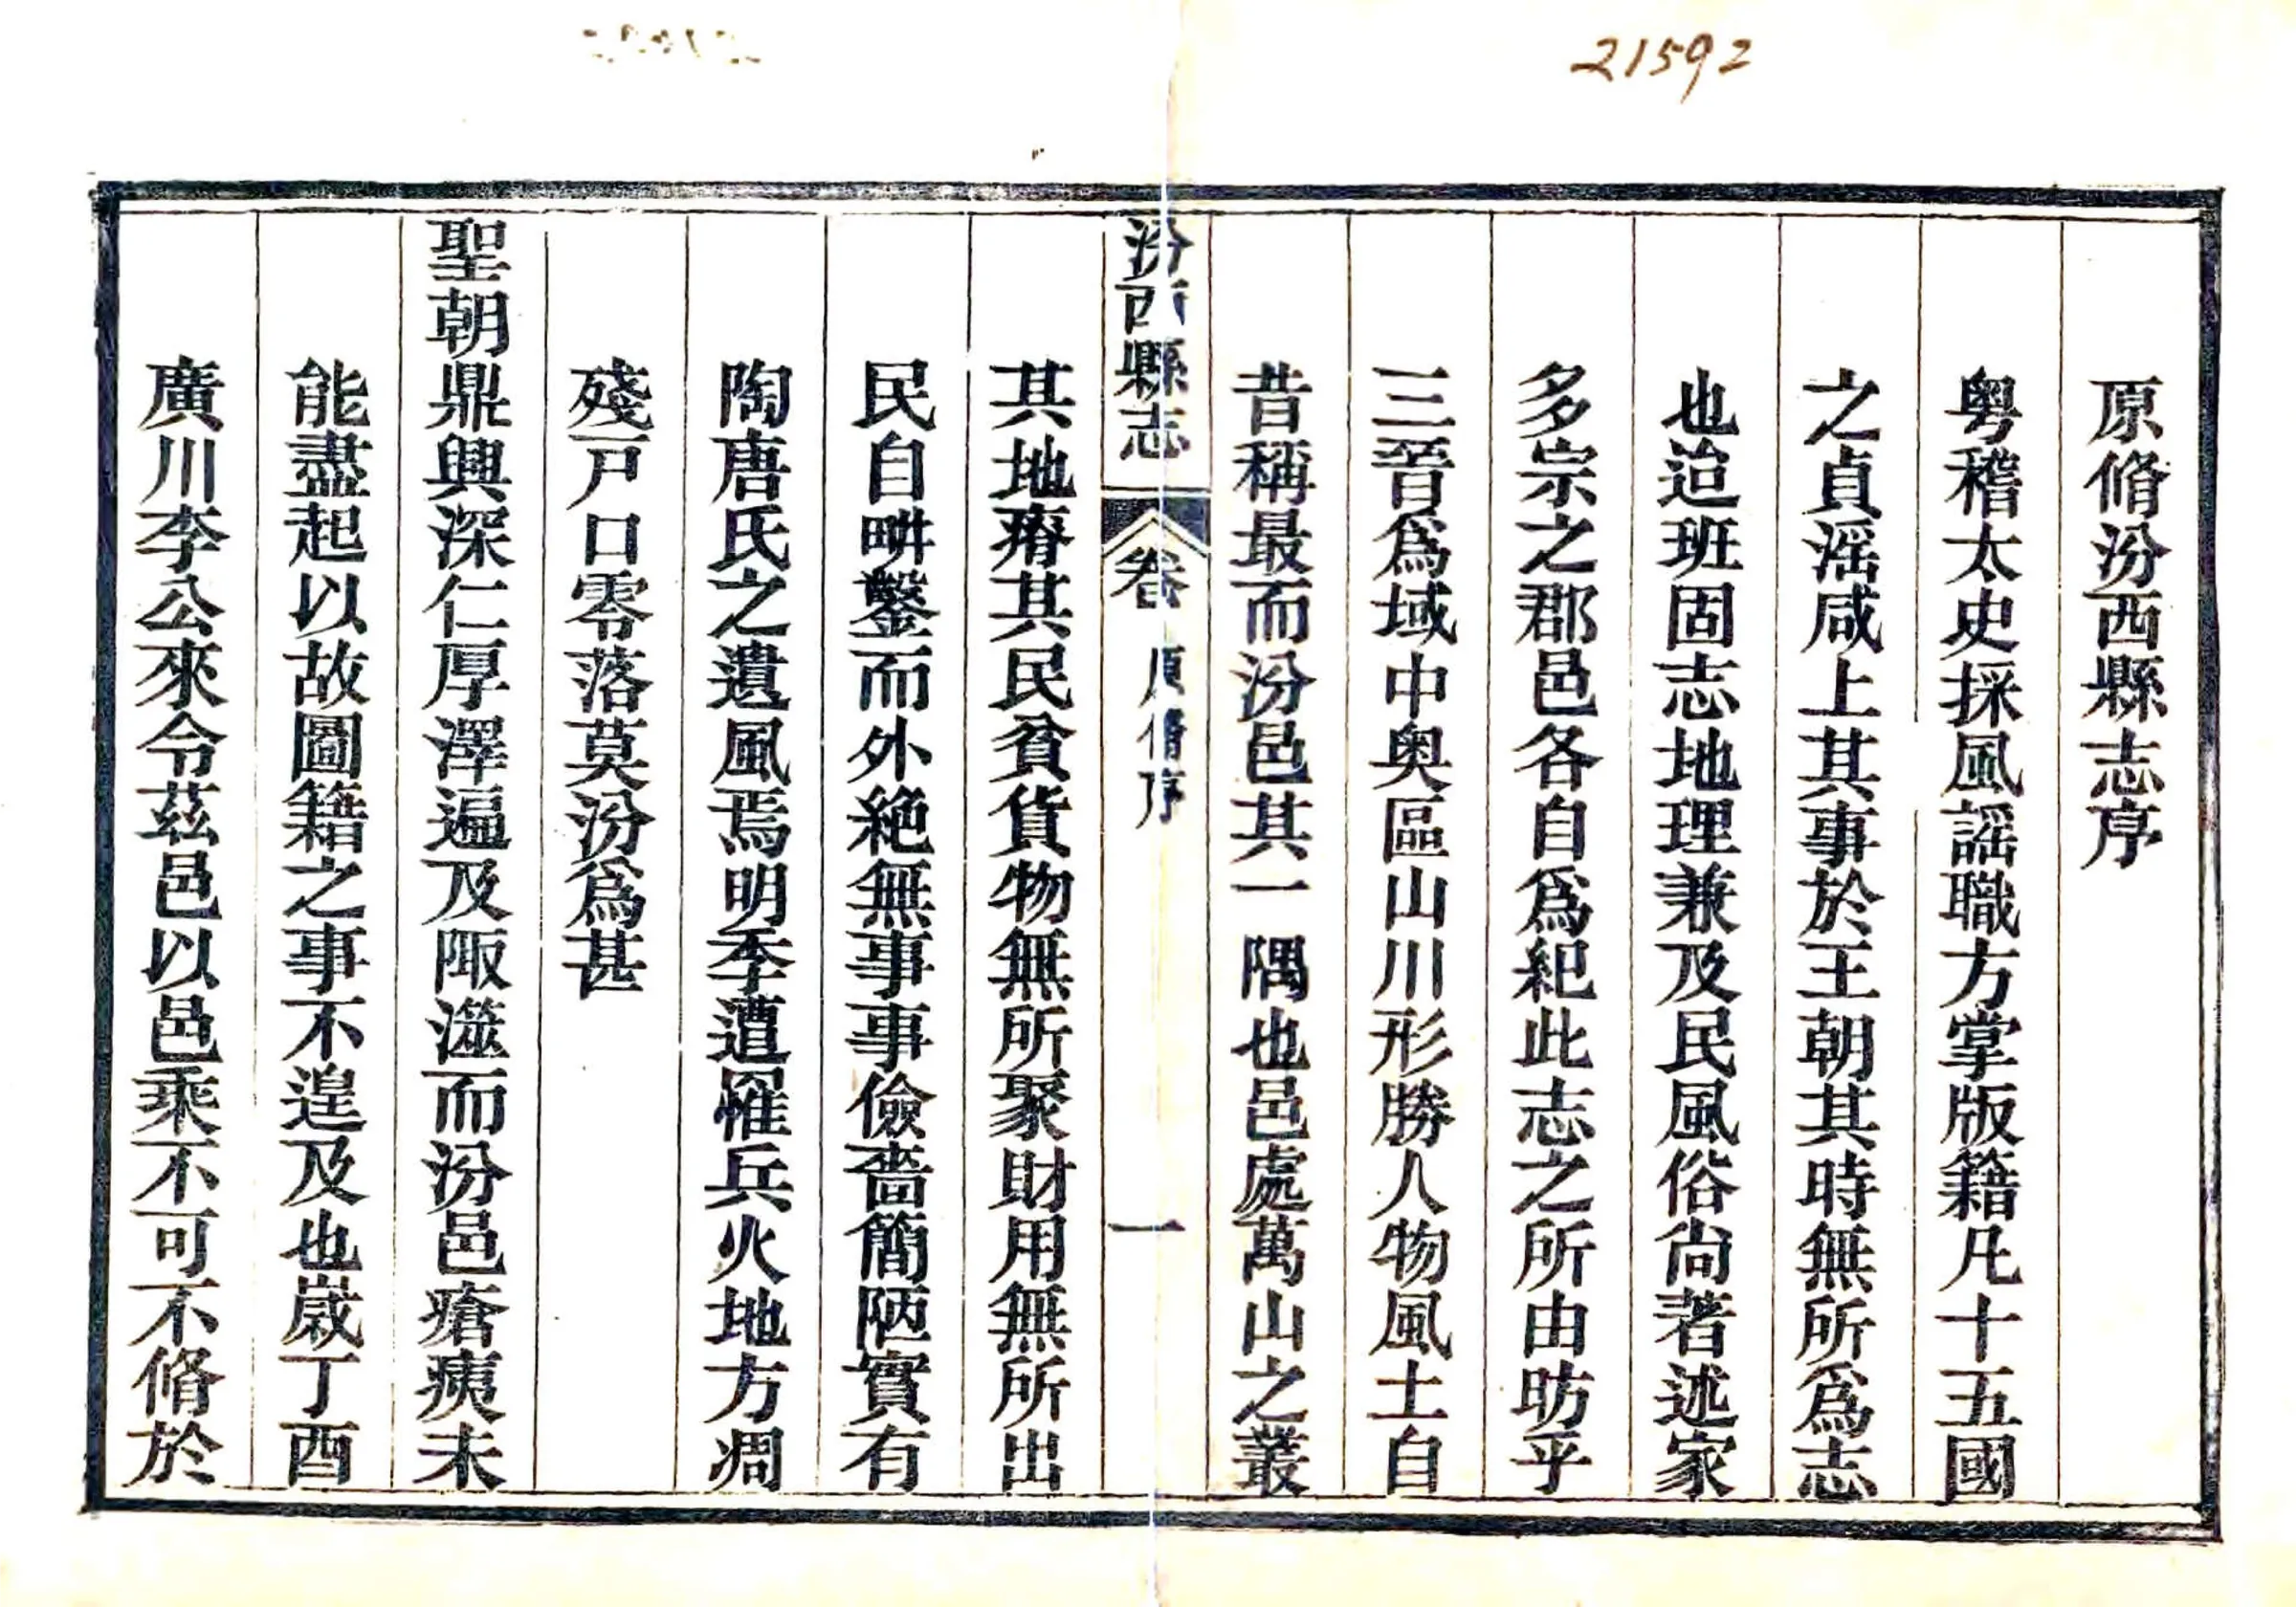 21592
原脩汾西縣志序
粤稽太史採風謡職方掌版籍凡十五國
之貞滛咸上其事於王朝其時無所爲志
也迨班固志地理兼及民風俗尚著述家
多宗之郡邑各自爲紀此志之所由昉乎
三晉爲域中奥區山川形勝人物風土自
昔稱最而汾邑其一隅也邑處萬山之叢
汾西縣志 卷 原脩序 一
其地瘠其民貧貨物無所聚財用無所出
民自畊鑿而外絶無事事儉嗇簡陋實有
陶唐氏之遺風焉明季遭罹兵火地方凋
殘戸口零落莫汾爲甚
聖朝鼎興深仁厚澤遍及陬澨而汾邑瘡痍未
能盡起以故圖籍之事不遑及也歲丁酉
廣川李公來令茲邑以邑乘不可不脩於